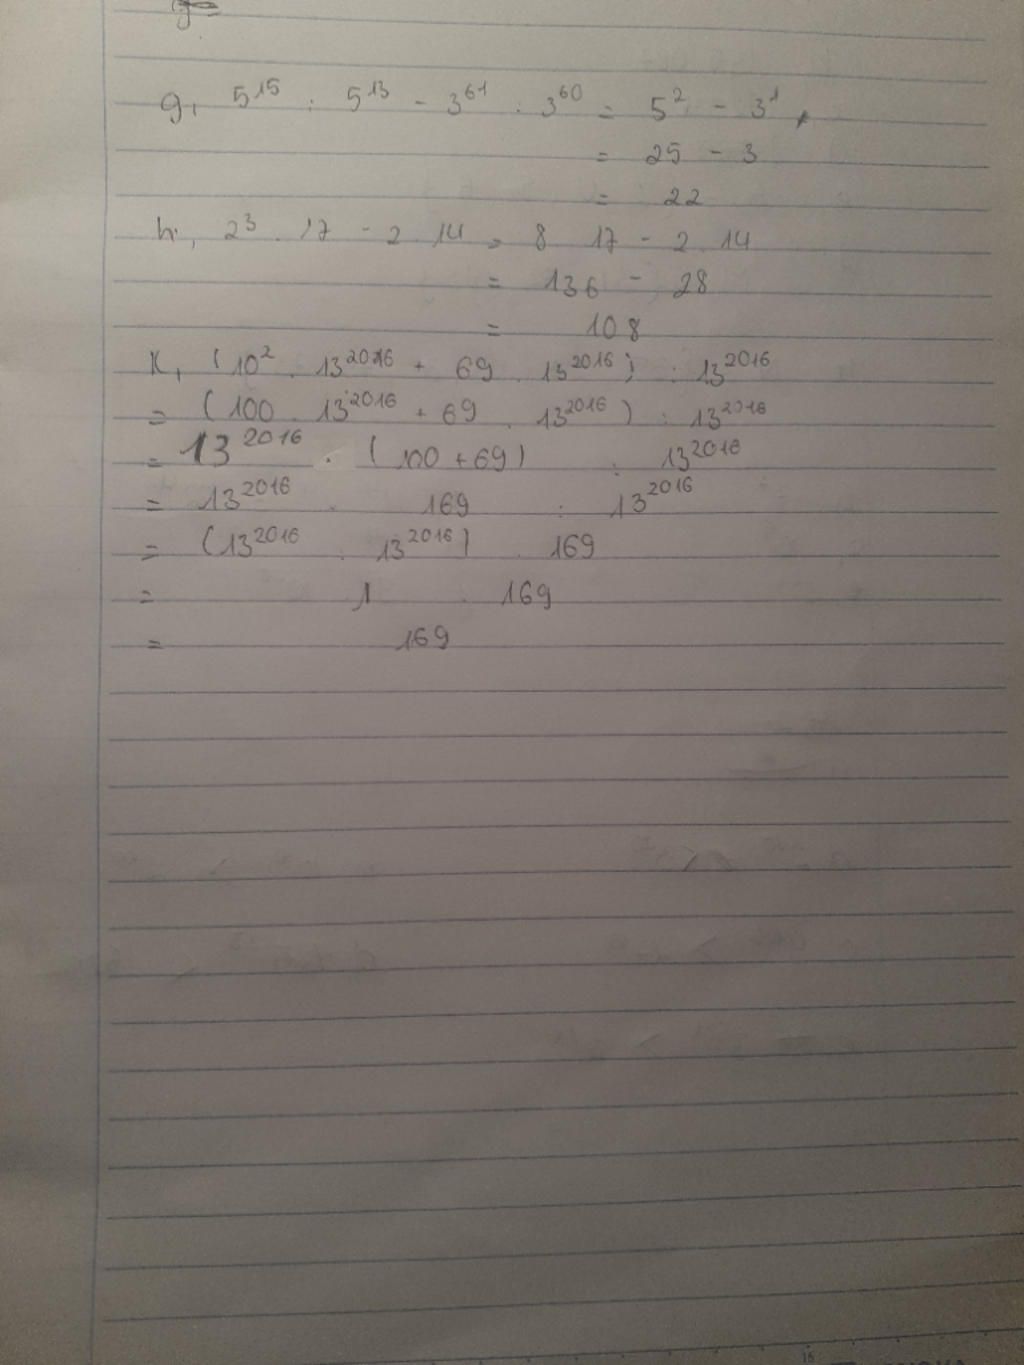 g, 5¹⁵ : 5¹³ - 3⁶¹ : 3⁶⁰ = 5² - 3¹
= 25 - 3
= 22
h, 2³ . 17 - 2 . 14 = 8 17 - 2 . 14
= 136 - 28
= 108
K, (10² . 13²⁰¹⁶ + 69 . 13²⁰¹⁶) : 13²⁰¹⁶
= (100 . 13²⁰¹⁶ + 69 . 13²⁰¹⁶) : 13²⁰¹⁶
= 13²⁰¹⁶ . (100 + 69) : 13²⁰¹⁶
= 13²⁰¹⁶ . 169 : 13²⁰¹⁶
= (13²⁰¹⁶ : 13²⁰¹⁶) . 169
= 1 . 169
= 169